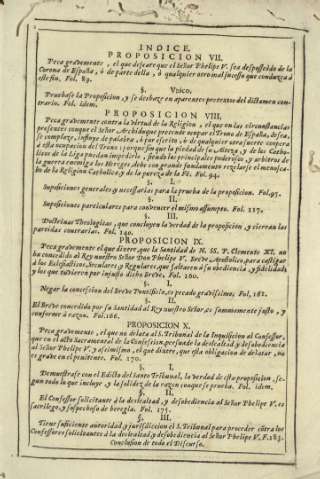 INDICE.
PROPOSICION VII.
Peca gravemente, el que deseare que el Señor Phelipe V. sea desposseido de la
Corona de España, ò de parte della, ò qualquier otro mal sucesso que conduzca à
este fin. Fol. 89.
§. Unico.
Pruebase la Proposicion, y se deshaze en aparentes pretextos del dictamen con-
trario. Fol. idem.
PROPOSICION VIII.
Peca gravemente contra la Virtud de la Religion, el que en las circunstancias
presentes conoce el Señor Archiduque pretende ocupar el Trono de España, desea,
se complaze, influye de palabra, ò por escrito, ò de qualquier otra suerte coopera
à esta ocupacion del Trono: porque sin que la piedad de su Alteza, y de los Catho-
licos de la Liga puedan impedirlo, siendo los principales poderosos, y arbitros de
la guerra enemiga los Hereges, debe con grande fundamento rezelarse el menosca-
bo de la Religion Catholica, y de la pureza de la Fè. Fol. 94.
§. I.
Suposiciones generales y necessarias para la prueba de la proposicion. Fol. 95.
§. II.
Suposiciones particulares para convencer el mismo assumpto. Fol. 117.
§. III.
Doctrinas Theologicas, que concluyen la verdad de la proposicion, y cierran las
partidas contrarias. Fol. 140.
PROPOSICION IX.
Peca gravemente el que dixere, que la Santidad de N. SS. P. Clemente XI. no
ha concedido al Rey nuestro Señor Don Phelipe V. Breve Apostolico, para castigar
à los Eclesiasticos, Seculares y Regulares, que faltaren à su obediencia, y fidelidad,
y los que tuvieren por injusto dicho Breve. Fol. 160.
§. I.
Negar la concession del Breve Pontificio, es pecado gravissimo. Fol. 161.
§. II.
El Breve concedido por su Santidad al Rey nuestro Señor, es sumamente justo, y
conforme à razon. Fol. 166.
PROPOSICION X.
Peca gravemente, el que no delata al S. Tribunal de la Inquisicion al Confessor,
que en el acto Sacramental de la Confession, persuade la deslealtad y desobediencia
al Señor Phelipe V. y assimismo, el que dixere, que esta obligacion de delatar, no
es grave en el penitente. Fol. 170.
§. I.
Demuestrase con el Edicto del Santo Tribunal, la verdad de esta proposicion, se-
gun todo lo que incluye, y la solidez de la razon con que se prueba. Fol. idem.
§. II.
El Confessor solicitante à la deslealtad, y desobediencia al Señor Phelipe V. es
sacrilego, y sospechoso de heregia. Fol. 175.
§. III.
Tiene suficiente autoridad y jurisdiccion el S. Tribunal para proceder cõtra los
Confessores solicitantes à la deslealtad, y desobediencia al Señor Phelipe V. F. 183.
Conclusion de todo el Discurso.